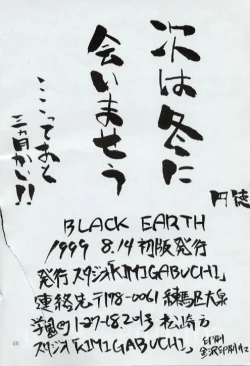 次は冬に
会いませう
ここっておと
三ヵ月かい!!
円徒
BLACK EARTH
1999 8.14 初版発行
発行 スタジオ「KIMIGABUCHI」
連絡先 〒178-0061 練馬区大泉
学園町1-27-18.201号 松崎方
スタジオ「KIMIGABUCHI」
印刷
金沢印刷